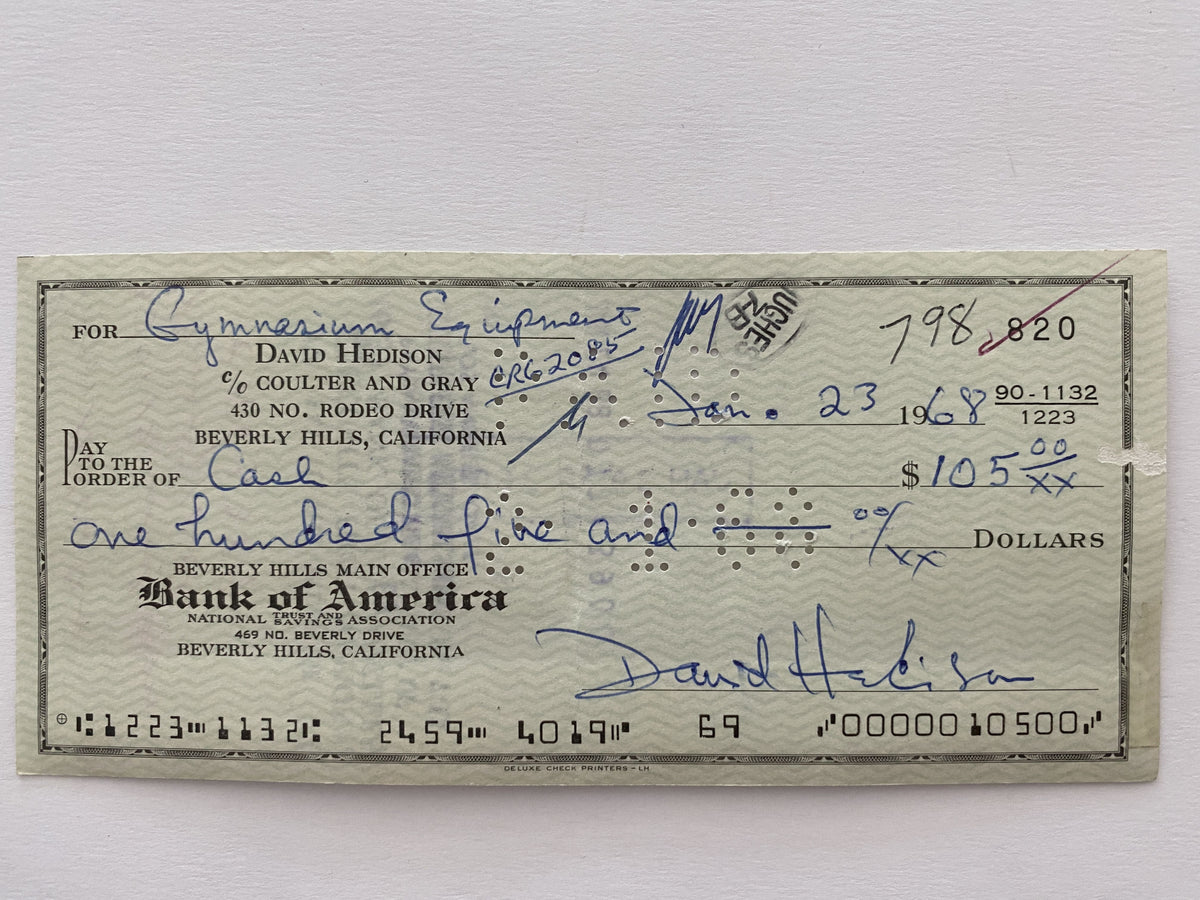 FOR Gymnasium Equipment
798 820
DAVID HEDISON
c/o COULTER AND GRAY
430 NO. RODEO DRIVE
BEVERLY HILLS, CALIFORNIA
Jan. 23 1968
90-1132
1223
PAY TO THE ORDER OF Cash $ 105 00/XX
one hundred five and 00/XX DOLLARS
BEVERLY HILLS MAIN OFFICE
Bank of America
NATIONAL TRUST AND SAVINGS ASSOCIATION
469 NO. BEVERLY DRIVE
BEVERLY HILLS, CALIFORNIA
David Hedison
⑆1223⑉1132⑆ 2459⑉ 4019⑈ 69 ⑇0000010500⑇
DELUXE CHECK PRINTERS - LH